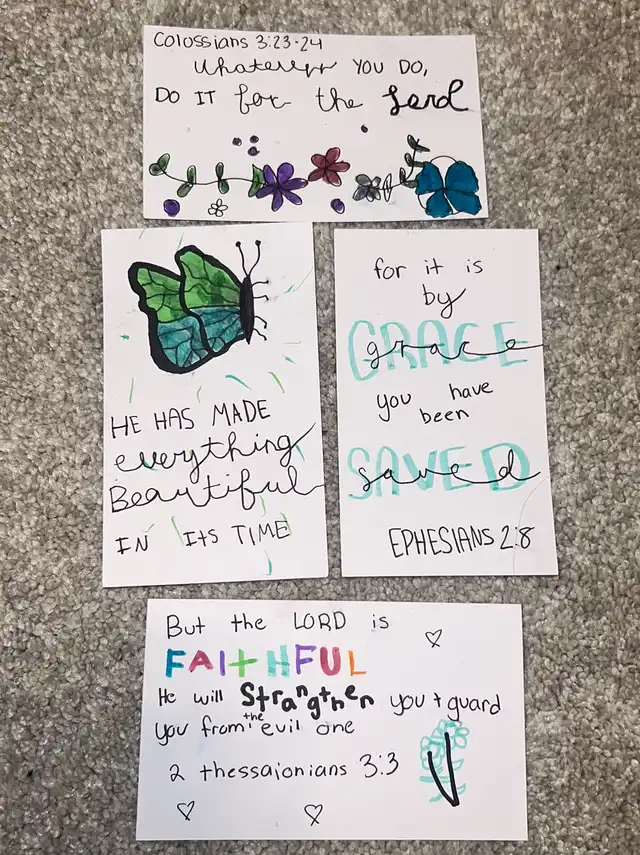 Colossians 3:23-24
Whatever YOU DO,
DO IT for the Lord
HE HAS MADE
everything
Beautiful
IN ITS TIME
for it is
by
GRACE
grace
you have
been
SAVED
saved
EPHESIANS 2:8
But the LORD is
FAITHFUL
He will Strangthen you + guard
you from the evil one
2 thessaionians 3:3